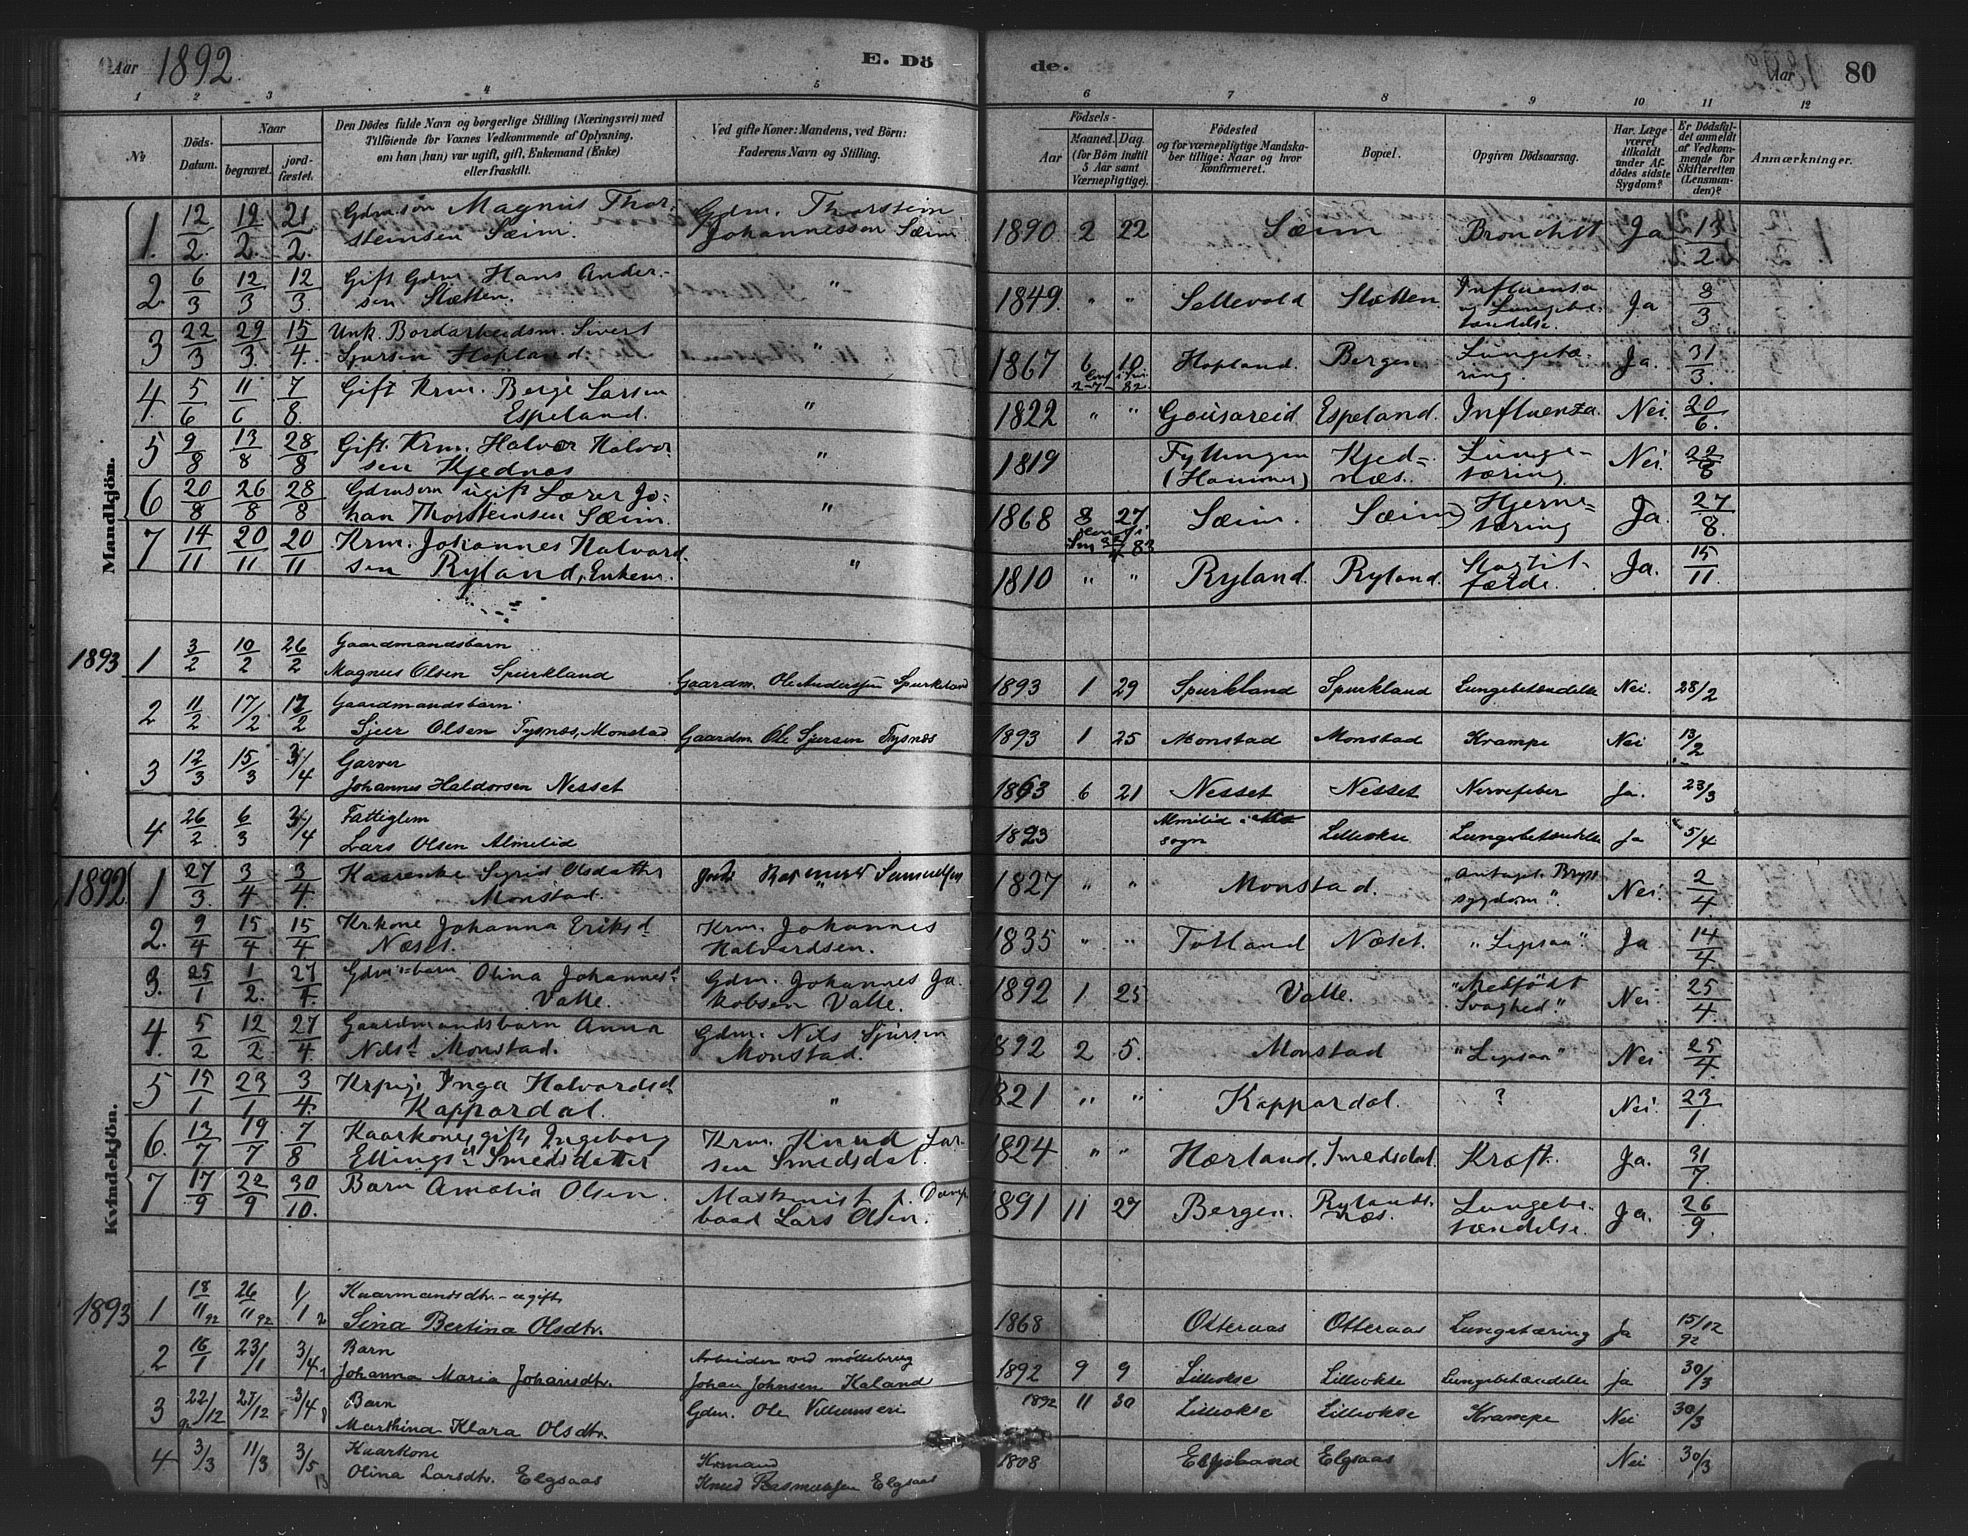 Aar 1892. E. Dö de. Aar 80
1 2 3 4 5 6 7 8 9 10 11 12
No
Döds-Datum.
Naar
begravet.
jord-fæstet.
Den Dödes fulde Navn og borgerlige Stilling (Næringsvei) med
Tilföiende for Voxnes Vedkommende af Oplysning,
om han (hun) var ugift, gift, Enkemand (Enke)
eller fraskilt.
Ved gifte Koner: Mandens, ved Börn:
Faderens Navn og Stilling.
Födsels-
Aar
Maaned. Dag
(for Börn indtil
5 Aar samt
Værnepligtige).
Födested
og for værnepligtige Mandska-
ber tillige: Naar og hvor
konfirmeret.
Bopæl.
Opgiven Dödsaarsag.
Har Læge
været
tilkaldt
under Af-
dödes sidste
Sygdom?
Er Dödsfal-
det anmeldt
af Vedkom-
mende for
Skifteretten
(Lensman-
den)?
Anmærkninger.
Mandkjön.
1. 12/2. 19/2. 21/2. Gdmsön Magnus Thor- Gdm. Thorstein
steinsen Sæim. Johannessen Sæim 1890 2 22 Sæim Bronchit Ja 13/2
2 6/3 12/3 12/3. Gift Gdm. Hans Ander-
sen Sletten. " 1849. " " Sellevold Sletten Influensa
og Lungebe-
tændelse. Ja 8/3
3 22/3 29/3. 15/4. Unk. Bordarbeidsm. Sivert
Sjursen Hopland. " 1867 6 10 Hopland. Bergen Lungetæ-
ring. Ja. 31/3.
4. 5/6 11/6 7/8. Gift Krm. Berge Larsen
Espeland. " 1822 " " Gousareid Espeland. Influenza. Nei 20/6.
5 9/8 13/8 28/8 Gift. Krm. Halvor Halvor-
sen Kjednæs " 1819 Fyllingen
(Hammer) Kjed-
næs. Lunge-
tæring Nei 22/8
6 20/8 26/8 28/8 Gdmsøn ugift Lærer Jo-
han Thorsteinsen Sæim. " 1868 8 27 Sæim. Sæim Hjerne-
tæring Ja. 27/8.
7 14/11 20/11 20/11 Krm. Johannes Halvord-
sen Ryland, Enkem. " 1810 " " Ryland. Ryland. Slagtil-
fælde. Ja. 15/11.
1893 1 3/2 10/2 26/2 Gaardmandsbarn
Magnus Olsen Spurkland Gaardm. Ole Andersen Spurkeland 1893 1 29 Spurkland Spurkland Lungebetændelse Nei. 28/2
2 11/2 17/2 17/2 Gaardmandsbarn
Sjur Olsen Tysnæs, Monstad Gaardm. Ole Sjursen Tysnæs 1893 1 25 Monstad Monstad Krampe Nei 13/2
3 12/3 15/3 3/4 Garver
Johannes Haldorsen Nesset 1863 6 21 Nesset Nesset Nervefeber Ja. 23/3
4 26/2 6/3 3/4 Fattiglem
Lars Olsen Almelid 1823 sogn Lilleokse Lungebetændelse Ja 5/4
Kvindekjön.
1892 1 27/3. 3/4 3/4. Kaarenke Syrid Olsdatter
Monstad. Samuelsen 1827 " " Monstad. "Antagel. Bryst
sygdom". Nei. 2/4.
2. 9/4 15/4 15/4 Krkone Johanna Eriksd
Næset. Krm. Johannes
Halvardsen. 1835 " " Totland Næset. "Lepsaa" Ja 14/4.
3. 25/1 1/2. 27/4. Gdm's barn Olina Johannesd
Valle. Gdm. Johannes Ja-
kobsen Valle. 1892 1 25 Valle. "Medfödt
Svaghed". Nei. 25/4.
4. 5/2 12/2 27/4 Gaardmandsbarn Anna
Nilsd Monstad. Gdm. Nils Sjursen
Monstad. 1892 2 5. Monstad "Lepsaa" Nei 25/4.
5 15/1 23/1 3/4. Krpige Inga Halvardsd
Kappardal. " 1821 " " Kappardal. ? Nei. 23/1
6. 13/7 19/7 7/8 Kaarkone, gift, Ingeborg
Ellingsd Smedsdatter Krm. Knud Lar-
sen Smedsdal. 1824 " " Hærland. Smedsdal. Kræft. Ja. 31/7.
7 17/9 22/9 30/10. Barn Amalia Olsen. Maskinist p. Damp-
baad Lars Olsen. 1891 11 29 Bergen. Rylands-
næs. Lungebe-
tændelse. Ja. 26/9.
1893 1 18/11 92 26/11 92 1/1 Kaarmandsdtr. - ugift
Sina Bertina Olsdtr. 1868 Otteraas Otteraas Lungetæring Ja 15/12 92
2 16/1 23/1 3/4 Barn
Johanna Maria Johansdtr. Arbeider ved möllebrug
Johan Johnsen Kaland 1892 9 9 Lilleokse Lilleokse Lungebetændelse Ja 30/3
3 22/12 27/12 3/4 Barn
Marthina Klara Olsdtr. Gdm. Ole Villumsen 1892 11 30 Lilleokse Lilleokse Krampe Nei 30/3
4 3/3 11/3 3/5 Kaarkone
Olina Larsdtr. Elgsaas Krmand
Knud Rasmussen Elgsaas 1808 Elgsaas Nei 30/3